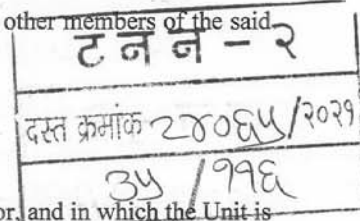 other members of the said
ट न न - २
दस्त क्रमांक २४०६५/२०२१
३५/११६
or, and in which the Unit is